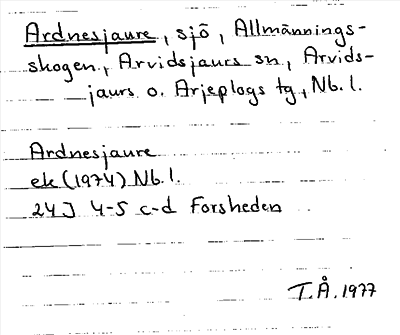 Ardnesjaure, sjö, Allmännings-
skogen, Arvidsjaurs sn, Arvids-
jaurs o. Arjeplogs tg, Nb. l.
Ardnesjaure
ek (1974) Nb. l.
24J 4-5 c-d Forsheden
T.Å. 1977